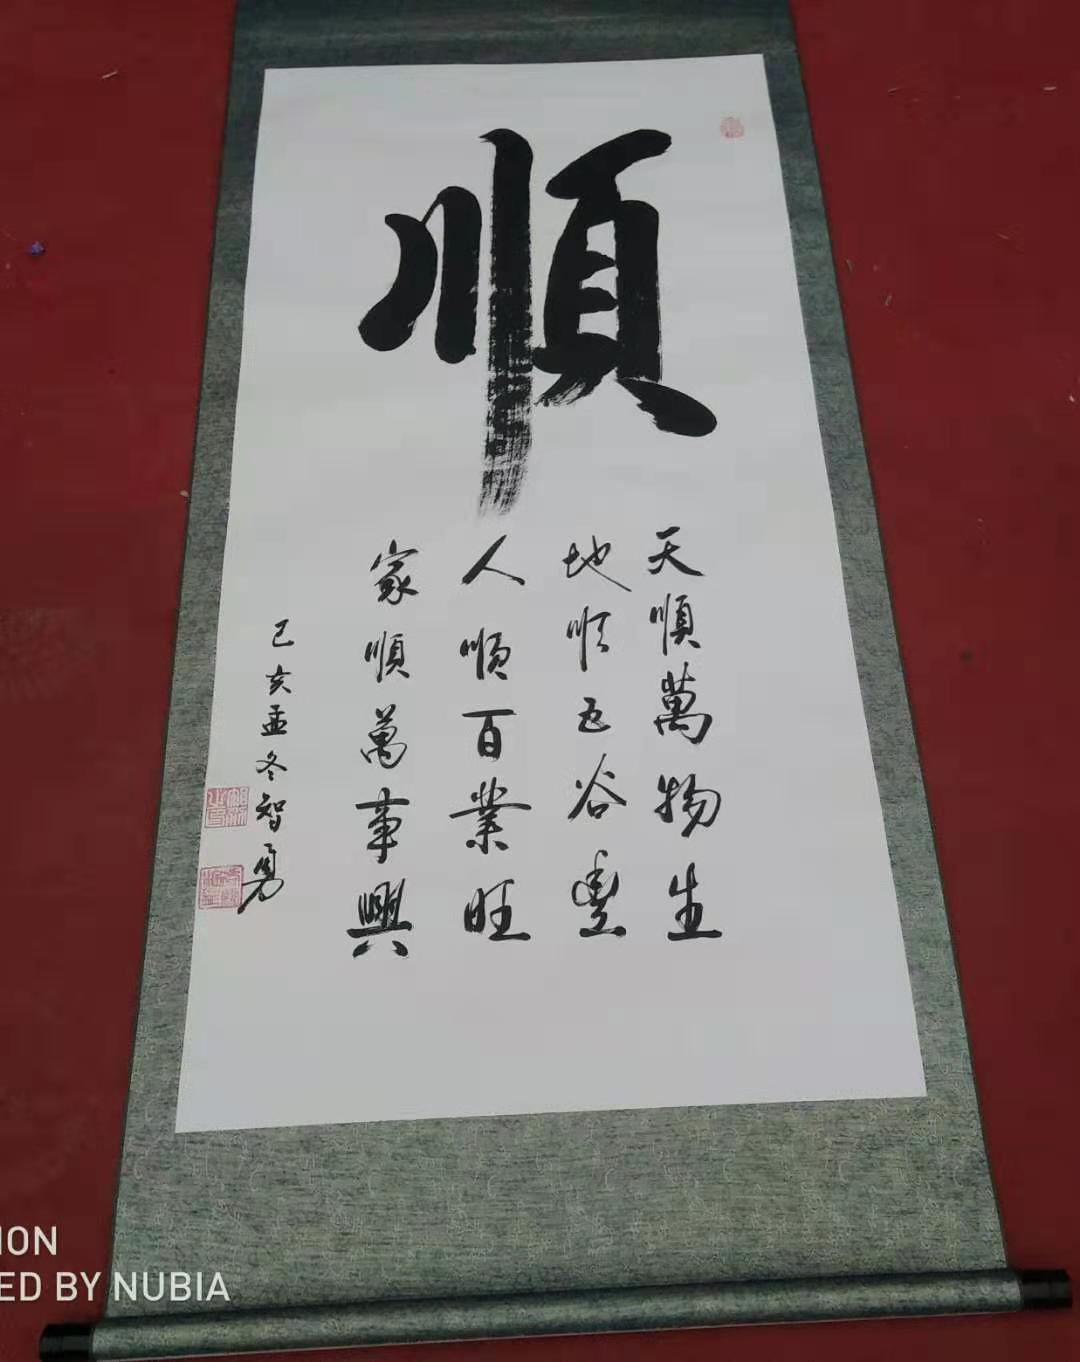 順
天順萬物生
地順五谷豐
人順百業旺
家順萬事興
己亥孟冬智勇
ION
ED BY NUBIA